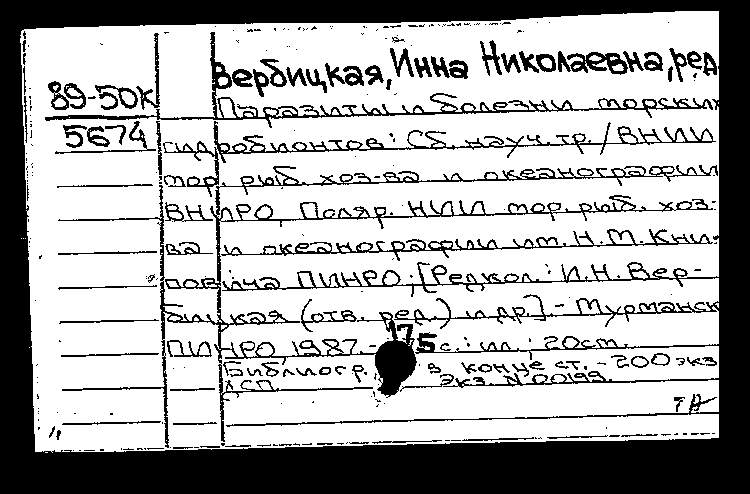 Вербицкая, Инна Николаевна, ред.
89-50К
5674
Паразиты и болезни морских
гидробионтов: Сб. науч. тр. / ВНИИ
мор. рыб. хоз-ва и океанографии
ВНИРО, Поляр. НИИ мор. рыб. хоз-
ва и океанографии им. Н.М. Кни-
повича ПИНРО; [Редкол.: И.Н. Вер-
бицкая (отв. ред.) и др.]. - Мурманск
ПИНРО, 1987. - 175 с.: ил.; 20 см.
Библиогр. в конце ст. - 200 экз
ДСП. Экз. N 00199.